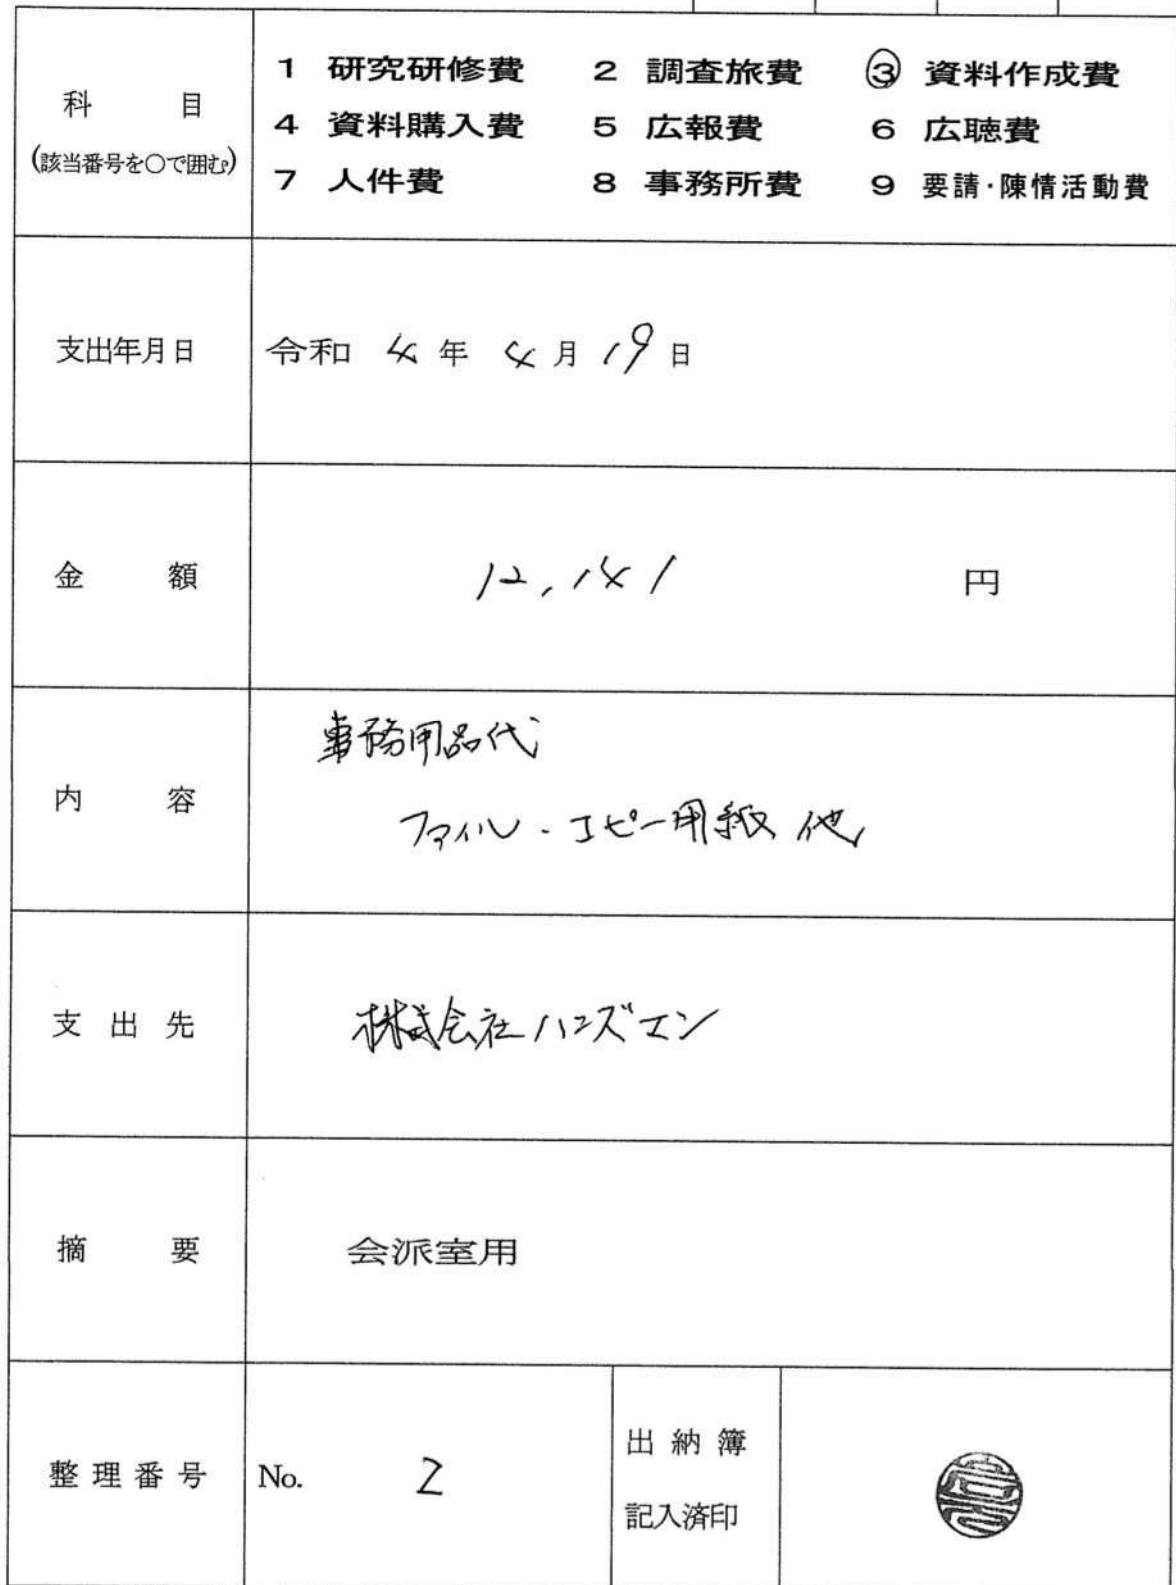 科目
(該当番号を〇で囲む)
1 研究研修費 2 調査旅費 3 資料作成費
4 資料購入費 5 広報費 6 広聴費
7 人件費 8 事務所費 9 要請・陳情活動費
支出年月日 令和 4 年 4 月 19 日
金額 12,141 円
内容 事務用品代
ファイル・コピー用紙 他
支出先 株式会社ハンズエン
摘要 会派室用
整理番号 No. 2
出納簿
記入済印